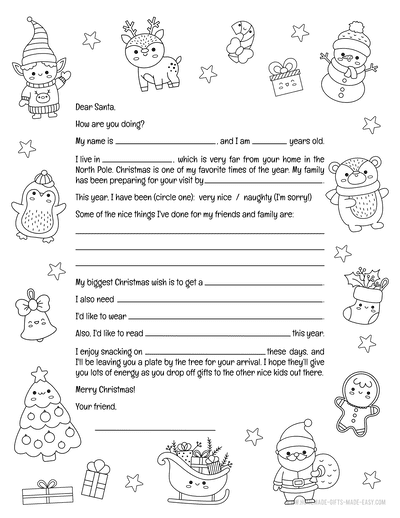 Dear Santa,
How are you doing?
My name is ____________________, and I am _________ years old.
I live in __________________, which is very far from your home in the
North Pole. Christmas is one of my favorite times of the year. My family
has been preparing for your visit by______________________________.
This year, I have been (circle one): very nice / naughty (I'm sorry!)
Some of the nice things I've done for my friends and family are:
My biggest Christmas wish is to get a ______________________________
I also need ______________________________
I'd like to wear ______________________________
Also, I'd like to read ______________________________ this year.
I enjoy snacking on ______________________________ these days, and
I'll be leaving you a plate by the tree for your arrival. I hope they'll give
you lots of energy as you drop off gifts to the other nice kids out there.
Merry Christmas!
Your friend,